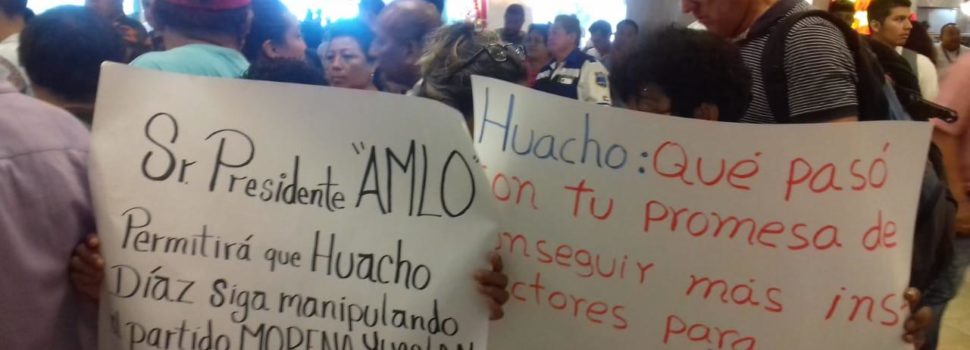 Sr. Presidente "AMLO"
Permitirá que Huacho
Díaz siga manipulando
partido MORENA
Huacho: Qué pasó
on tu promesa de
nseguir más ins
ctores para